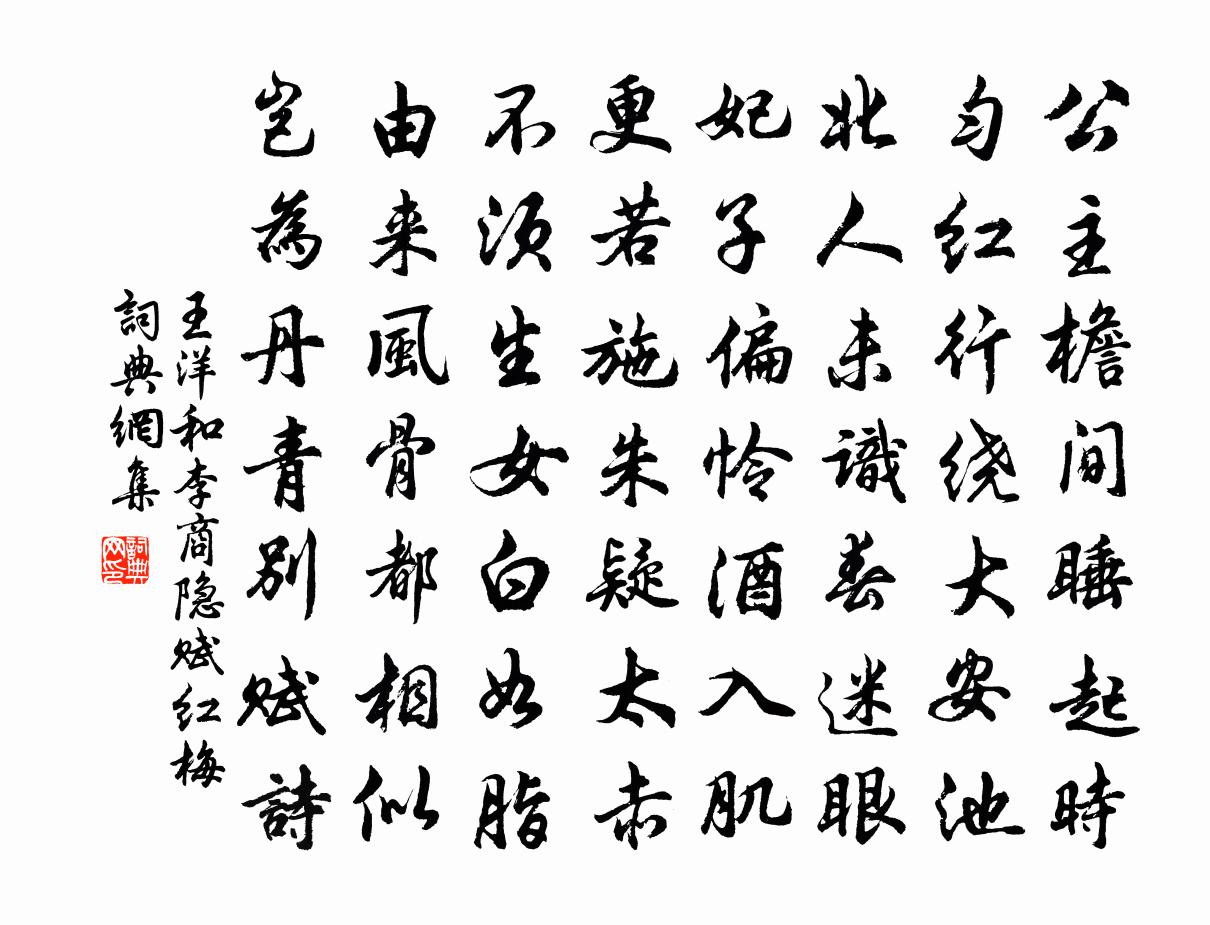 公主檐间睡起時
匀红行绕大安池
北人未識春迷眼
妃子偏怜酒入肌
更若施朱疑太赤
不须生女白如脂
由来風骨都相似
岂為丹青别赋詩
王洋和李商隐赋红梅
詞典網集
詞典网印